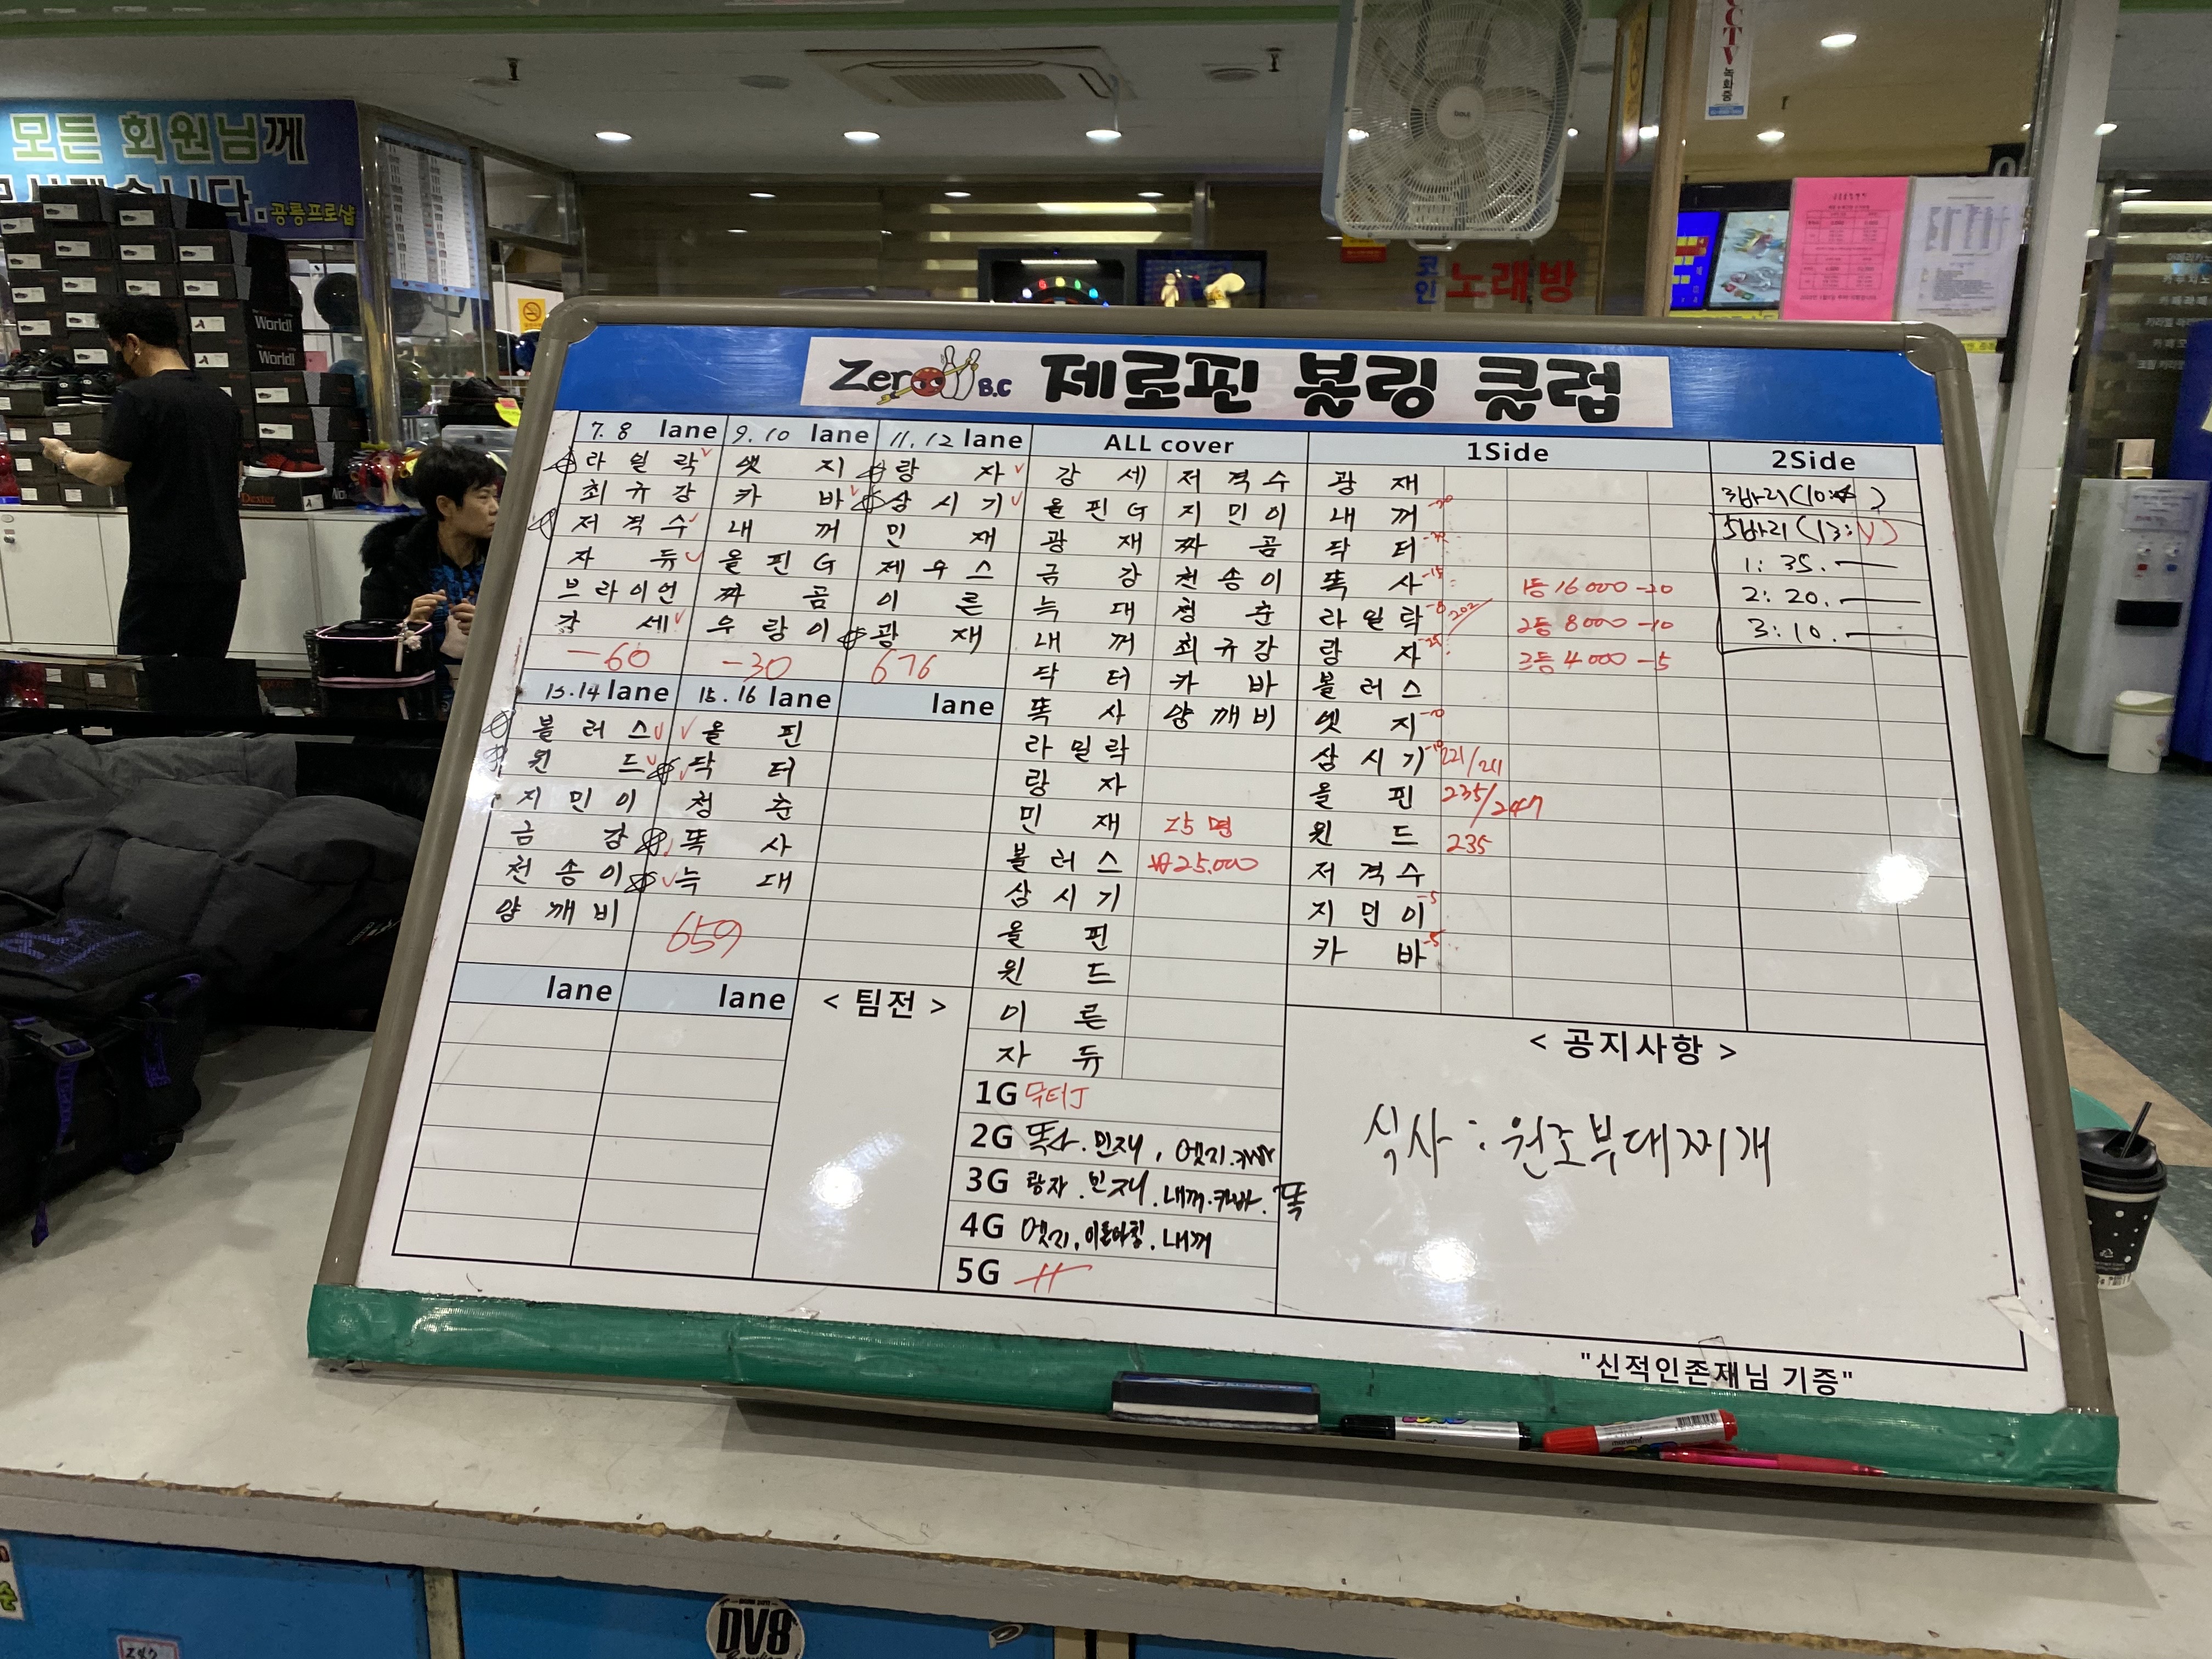 모든 회원님께
공룡프로샵
CCTV 녹화중
코인 노래방
World!
World!
Dexter
Zero B.C 제로핀 볼링 클럽
7. 8 lane 9. 10 lane 11. 12 lane ALL cover 1Side 2Side
라일락 엣지 랑자 강세 저격수 광재
최규강 카바 삼시기 올핀G 지민이 내꺼
저격수 내꺼 민재 광재 짜곰 닥터
자듀 올핀G 제우스 금강 천송이 똑사 -15
브라이언 짜곰 이른 늑대 청춘 라일락 202
강세 우랑이 광재 내꺼 최규강 랑자
-60 -30 676 닥터 카바 볼러스
13. 14 lane 15. 16 lane lane 똑사 양깨비 엣지 -10
볼러스 올핀 라일락 삼시기 -10 221/211
윈드 닥터 랑자 올핀 235/247
지민이 청춘 민재 25명 윈드 235
금강 똑사 볼러스 ₩25.000 저격수
천송이 늑대 삼시기 지민이 -5
양깨비 올핀 카바 -5
659 윈드
이른
자듀
1등 16000 -20
2등 8000 -10
3등 4000 -5
3바리(10:
5바리(13:
1: 35.
2: 20.
3: 10.
lane lane < 팀전 >
1G 닥터J
2G 똑사. 민재, 엣지. 카바
3G 랑자. 민재. 내꺼. 카바. 똑
4G 엣지. 이른아침. 내꺼
5G
< 공지사항 >
식사 : 원조부대찌개
"신적인존재님 기증"
DV8